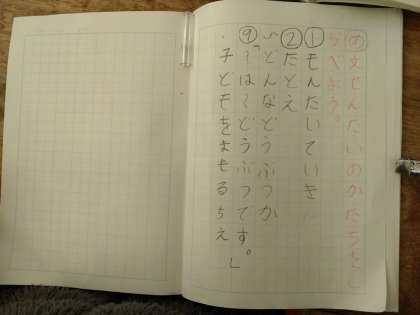 ㋱文ぜんたいのかたちをし
らべよう。
①もんたいていき
②たとえ
いどんなどうぶつか
⑨「〜は〜どうぶつです。」
・子どもをまもるちえ